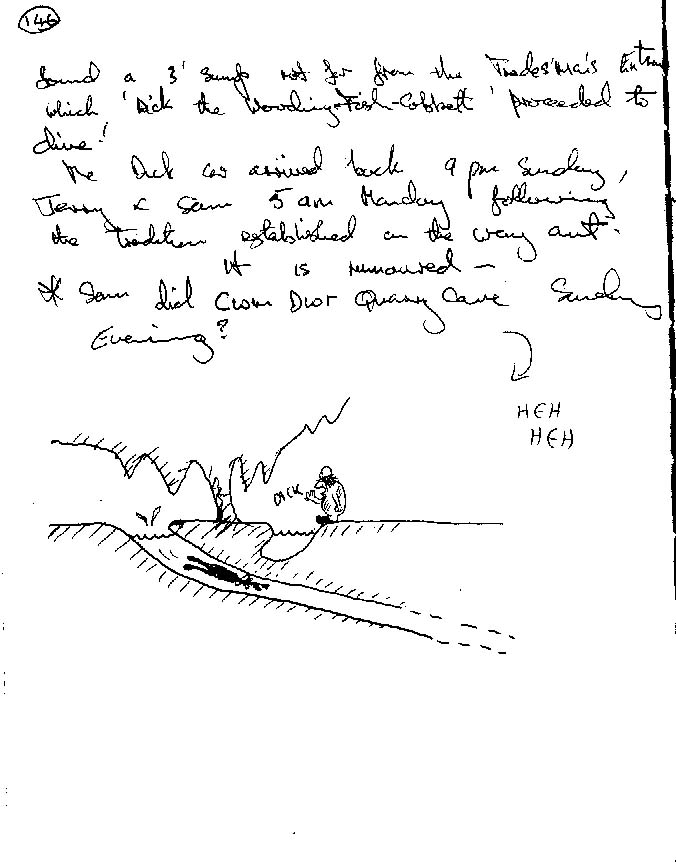 146
found a 3' sump not far from the Tradesman's Entran
which 'Dick the Wooding-Fish-Cobbett' proceeded to
dive!
The Dick car arrived back 9 pm Sunday,
Jerry & Sam 5 am Monday following
the tradition established on the way out.
It is rumoured —
* Sam did Cwm Dwr Quarry Cave Sunday
Evening?
HEH
HEH
DICK